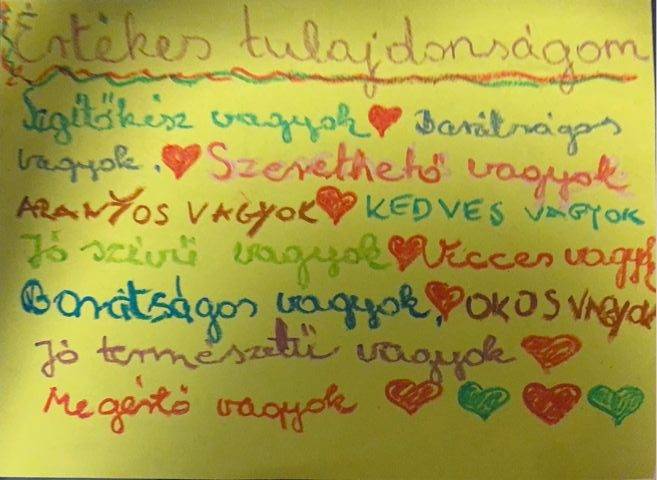 Értékes tulajdonságom
Segítőkész vagyok Barátságos
vagyok. Szerethető vagyok
ARANYOS VAGYOK KEDVES VAGYOK
Jó szívű vagyok Vicces vagyk
Barátságos vagyok, OKOS VAGYOK
Jó természetű vagyok
Megértő vagyok